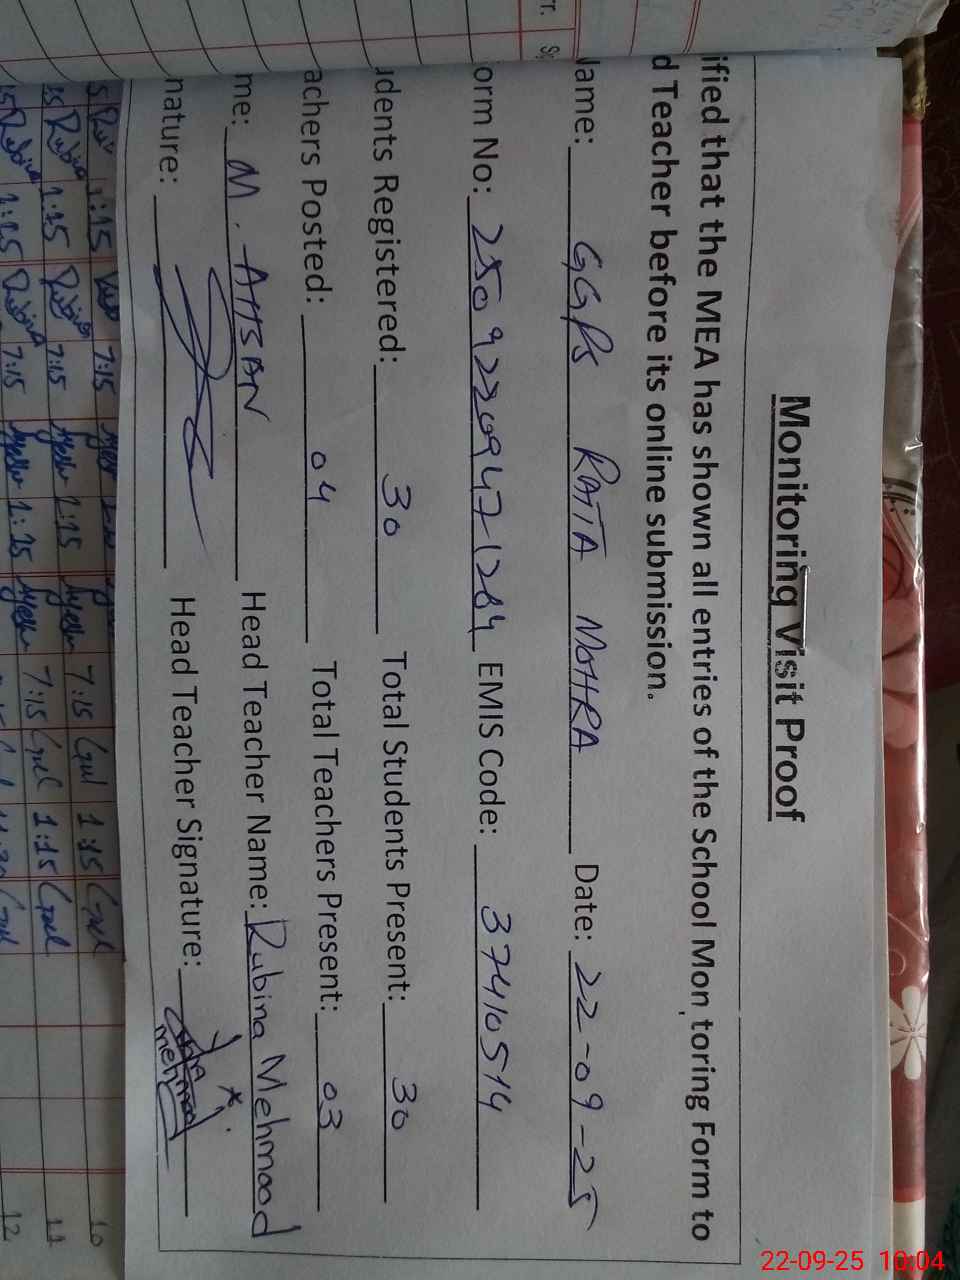 Monitoring Visit Proof
ified that the MEA has shown all entries of the School Mon toring Form to
d Teacher before its online submission.
Name: GGPS RATTA MOHRA Date: 22-09-25
orm No: 25092209471284 EMIS Code: 37410514
udents Registered: 30 Total Students Present: 30
achers Posted: 04 Total Teachers Present: 03
me: M. AHSAN Head Teacher Name: Rubina Mehmood
nature: Head Teacher Signature:
Rubina 1:15 Rubina 7:15 1:15 7:15 Gul 1:15 Gul 10
Rubina 1:15 Rubina 7:15 1:15 7:15 Gul 1:15 Gul 11
12
22-09-25 10:04